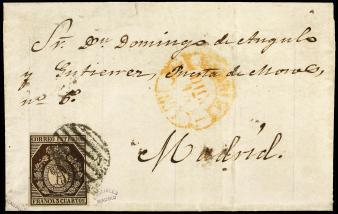 Sr. Dn. Domingo de Angulo
y Gutierrez, Puerta de Moros,
nº 6.
Madrid.
CORREO INTERIOR
FRANCO 3 CUARTOS